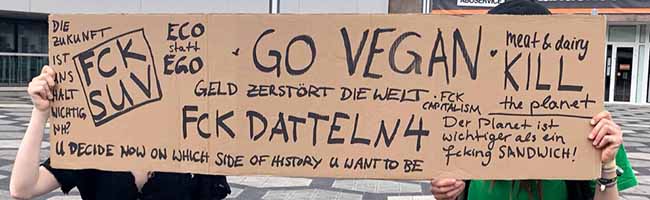 ABOSERVICE
DIE
ZUKUNFT
IST
UNS
HALT
WICHTIG,
NH?
FCK
SUV
ECO
statt
EGO
· GO VEGAN ·
GELD ZERSTÖRT DIE WELT ·
FCK
CAPITALISM
FCK DATTELN 4
U DECIDE NOW ON WHICH SIDE OF HISTORY U WANT TO BE
meat & dairy
KILL
the planet
Der Planet ist
wichtiger als ein
fcking SANDWICH!